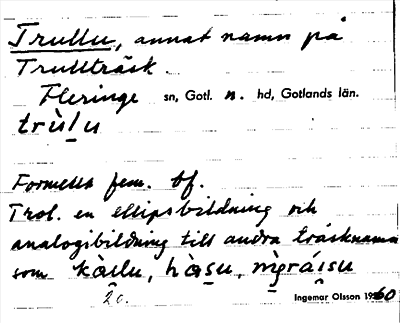 Trullu, annat namn på
Trullträsk.
Fleringe sn, Gotl. n. hd, Gotlands län.
trùlu
Formellt fem. bf.
Trol. en ellipsbildning och
analogibildning till andra träsknamn
som kàilu, hàsu, mỳráisu
2o.
Ingemar Olsson 1960